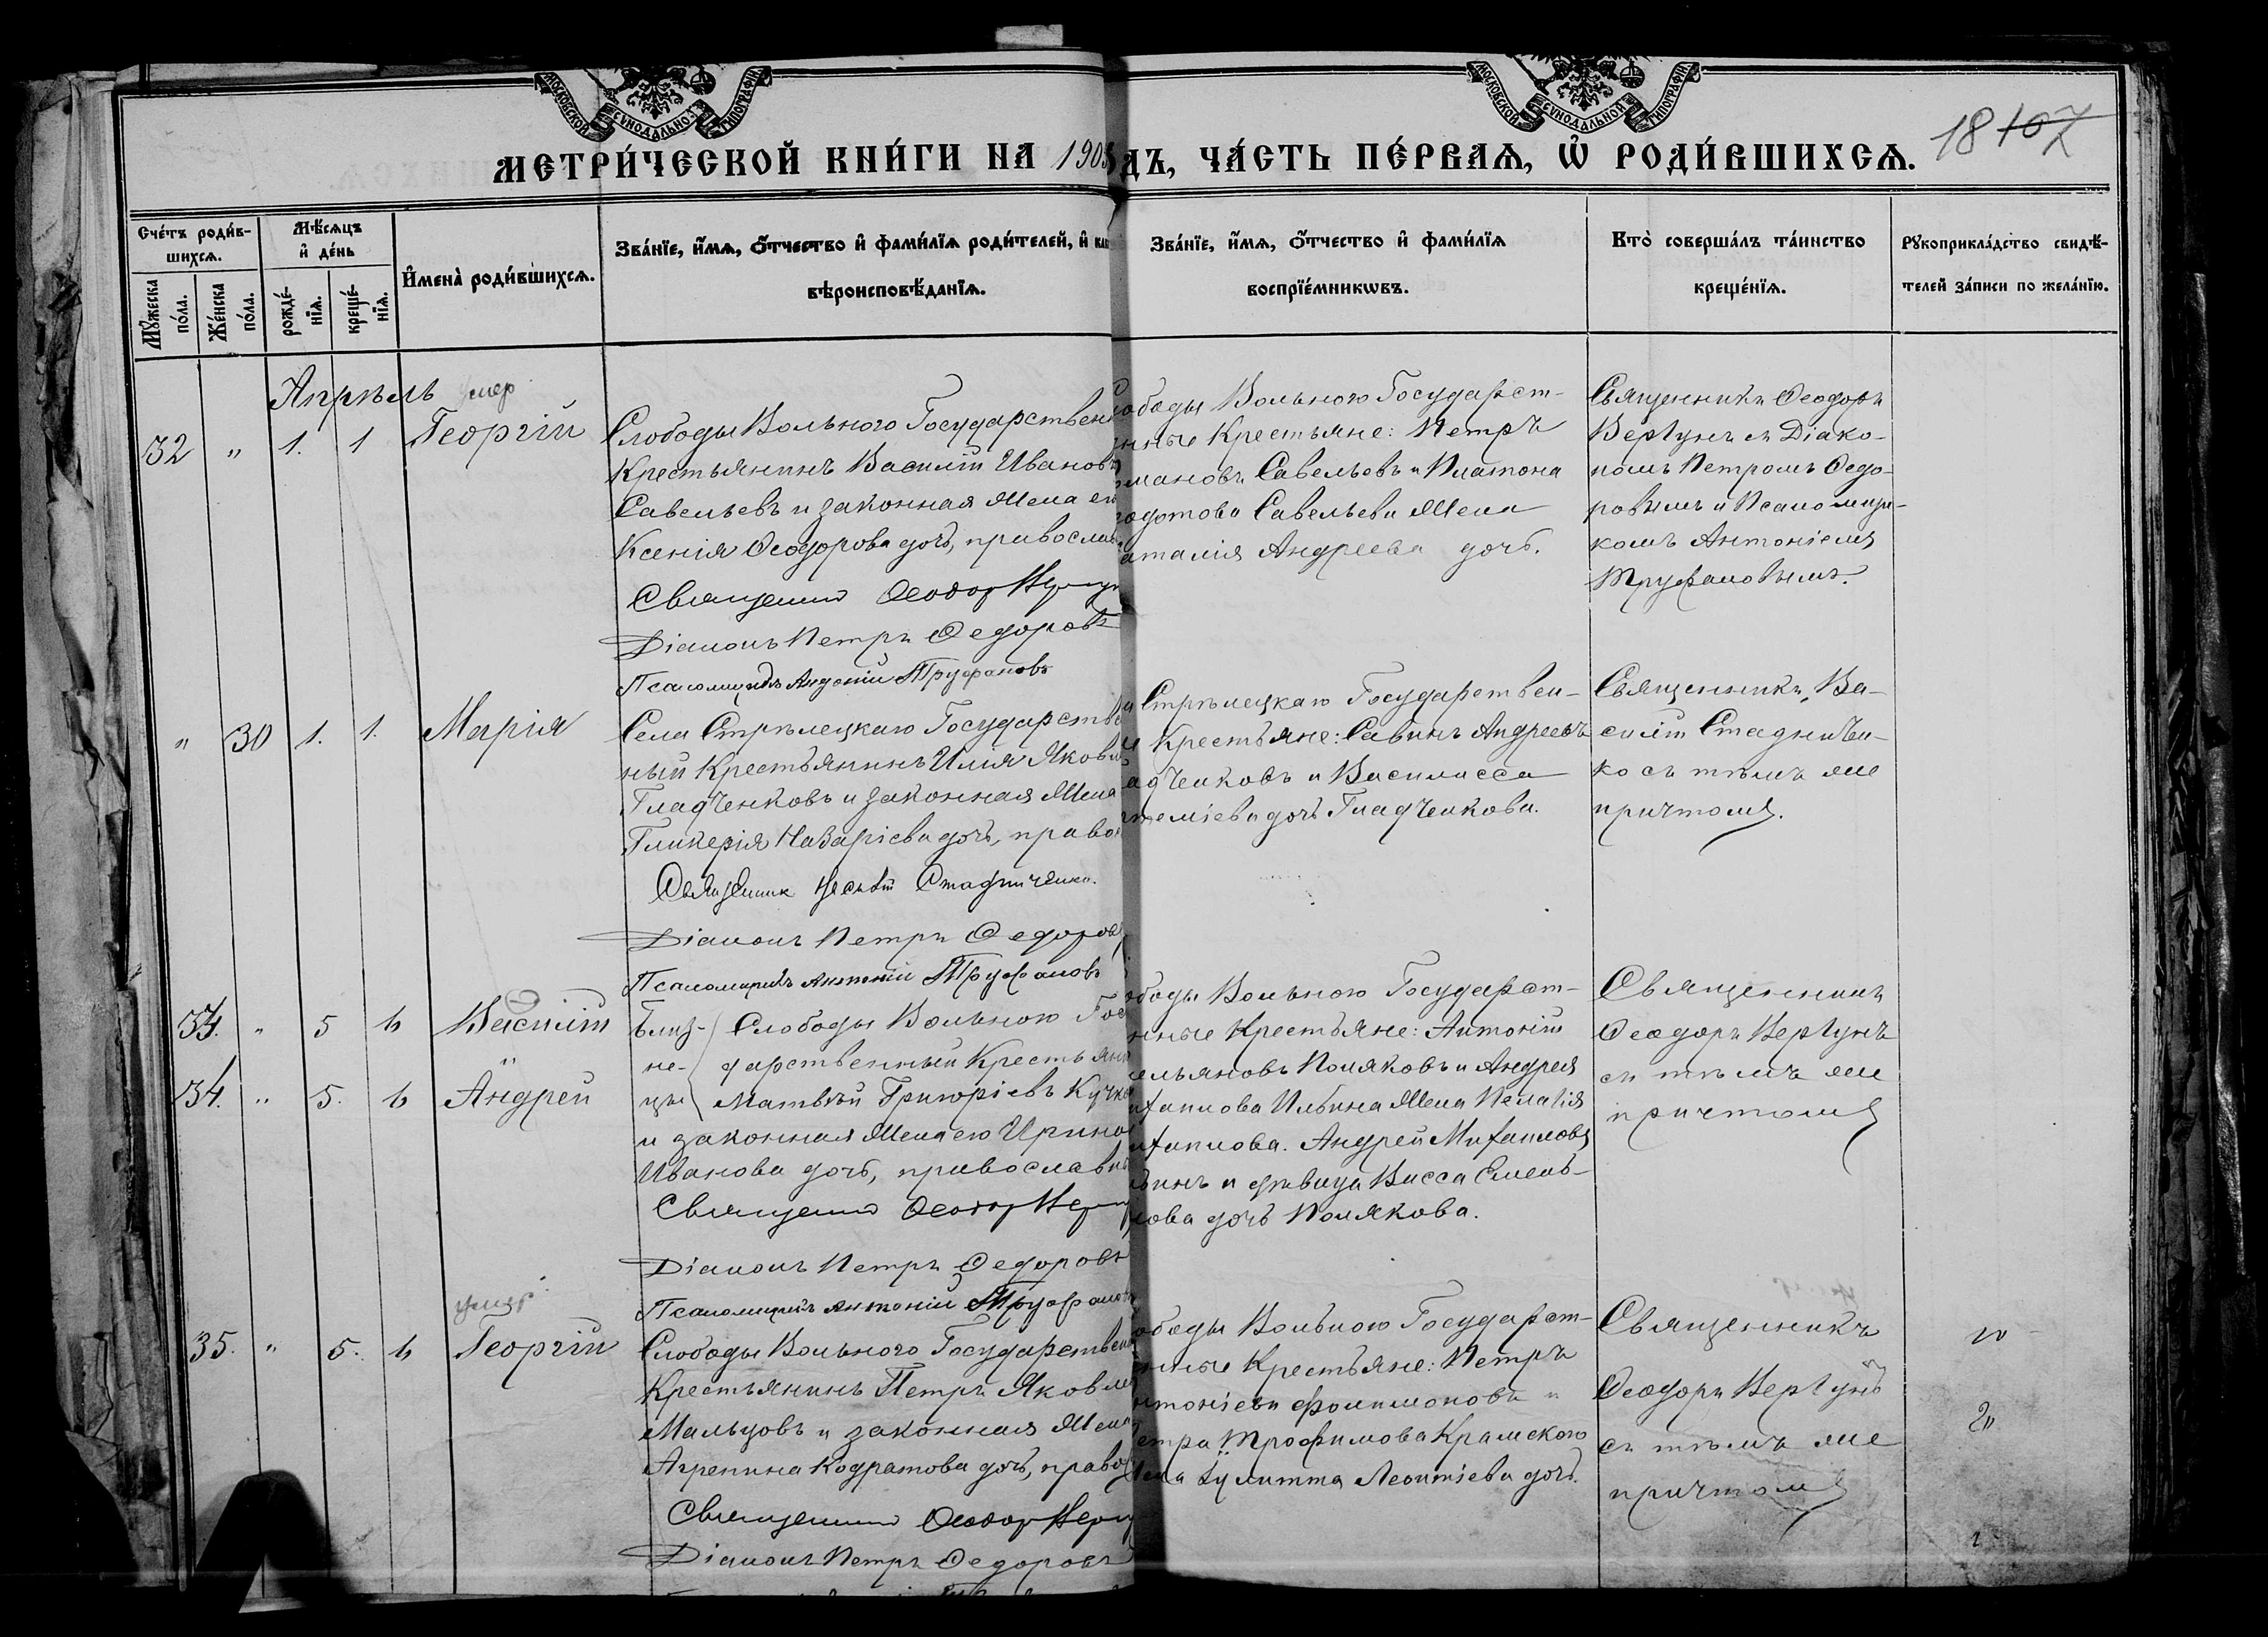 МОСКОВСКОЙ СѴНОДАЛЬНОЙ ТИПОГРАФІИ
МОСКОВСКОЙ СѴНОДАЛЬНОЙ ТИПОГРАФІИ
МЕТРИ́ЧЕСКОЙ КНИ́ГИ НА 1905
ДЪ, ЧА́СТЬ ПЕ́РВАѦ, Ѡ҆ РОДИ́ВШИХСѦ. 18 107
Сче́тъ роди́в-
шихсѧ.
Мꙋ́жеска по́ла.
Же́нска по́ла.
Мѣ́сѧцъ
и҆ де́нь
рожде́-
нїѧ.
креще́-
нїѧ.
И҆мена̀ роди́вшихсѧ.
Зва́нїе, и҆́мѧ, ѻ҆́тчество и҆ фами́лїѧ роди́телей, и҆ как
вѣроисповѣ́данїѧ.
Зва́нїе, и҆́мѧ, ѻ҆́тчество и҆ фами́лїѧ
воспрїе́мникѡвъ.
Кто̀ соверша́лъ та́инство
креще́нїѧ.
Рꙋкоприкла́дство свидѣ́-
телей за́писи по жела́нїю.
Апрѣль умер
32 " 1. 1 Георгій
Слободы Вольного Государствен
Крестьянинъ Василій Ивановъ
Савельевъ и законная Жена ег
Ксенія Ѳеодорова дочь, православ
Священник Ѳеодор Верг
Діаконъ Петръ Ѳедоровъ
Псаломщикъ Антоній Труфановъ
ободы Вольного Государст-
нные Крестьяне: Петръ
мановъ Савельевъ и Платона
одотова Савельева Жена
аталія Андреева дочь.
Священникъ Ѳеодоръ
Вергунъ съ Діако-
номъ Петромъ Ѳедо-
ровымъ и Псаломщи-
комъ Антоніемъ
Труфановымъ.
" 30 1. 1. Марія
Села Стрѣлецкаго Государстве
ный Крестьянинъ Илія Яковл
Гладченковъ и законная Жена
Гликерія Назаріева дочь, право
Священник Василій Стадниченко.
Діаконъ Петръ Ѳедоров
Псаломщикъ Антоній Труфановъ
Стрѣлецкаго Государствен-
Крестьяне: Савинъ Андреевъ
адченковъ и Василисса
теміева дочь Гладченкова.
Священникъ Ва-
силій Стадничен-
ко съ тѣмъ же
причтомъ.
33. " 5 6 Василій
34. " 5. 6 Андрей
Близ- Слободы Вольного Гос
не- дарственный Крестьяни
цы Матвѣй Григоріевъ Кучк
и законная Жена его Ирина
Иванова дочь, православн
Священник Ѳеодор Верг
Діаконъ Петръ Ѳедоровъ
Псаломщикъ Антоній Труфановъ
ободы Вольного Государст-
нные Крестьяне: Антоній
ельяновъ Поляковъ и Андрея
ихаилова Ильина Жена Пелагія
ихаилова. Андрей Михаиловъ
ьинъ и дѣвица Васса Емель-
нова дочь Полякова.
Священникъ
Ѳеодоръ Вергунъ
съ тѣмъ же
причтомъ
умер
35. " 5. 6 Георгій
Слободы Вольного Государствен
Крестьянинъ Петръ Яковле
Мальцовъ и законная Жена
Агрепина Кодратова дочь, право
Священник Ѳеодор Верг
Діаконъ Петръ Ѳедоровъ
ободы Вольного Государст-
нные Крестьяне: Петръ
нтоніевъ Филимоновъ и
етра Трофимова Крамского
ена Іулитта Леонтіева дочь.
Священникъ
Ѳеодоръ Вергунъ
съ тѣмъ же
причтомъ